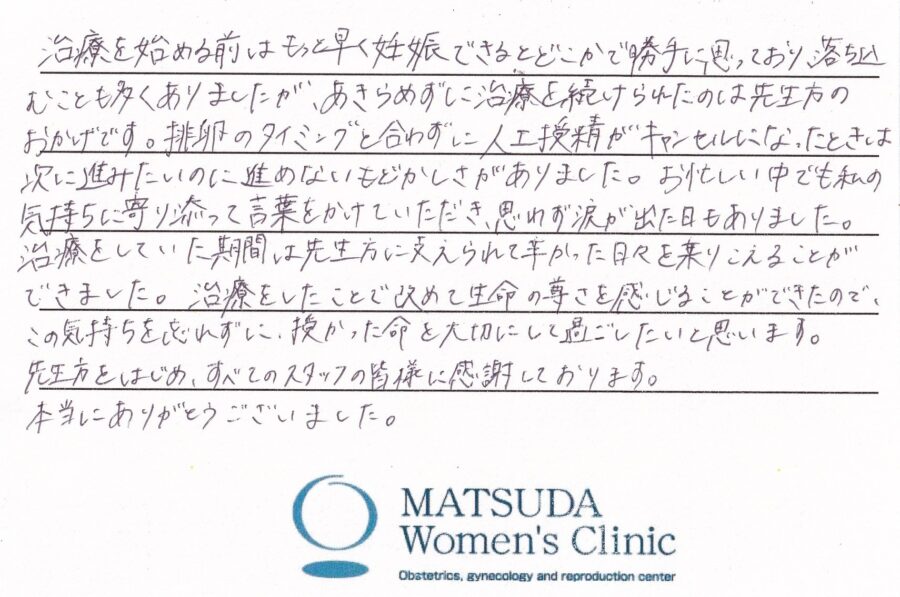 治療を始める前はもっと早く妊娠できるとどこかで勝手に思っており、落ち込
むことも多くありましたが、あきらめずに治療を続けられたのは先生方の
おかげです。排卵のタイミングと合わずに人工授精がキャンセルになったときは
次に進みたいのに進めないもどかしさがありました。お忙しい中でも私の
気持ちに寄り添って言葉をかけていただき、思わず涙が出た日もありました。
治療をしていた期間は先生方に支えられて辛かった日々を乗りこえることが
できました。治療をしたことで改めて生命の尊さを感じることができたので、
この気持ちを忘れずに、授かった命を大切にして過ごしたいと思います。
先生方をはじめ、すべてのスタッフの皆様に感謝しております。
本当にありがとうございました。
MATSUDA
Women's Clinic
Obstetrics, gynecology and reproduction center